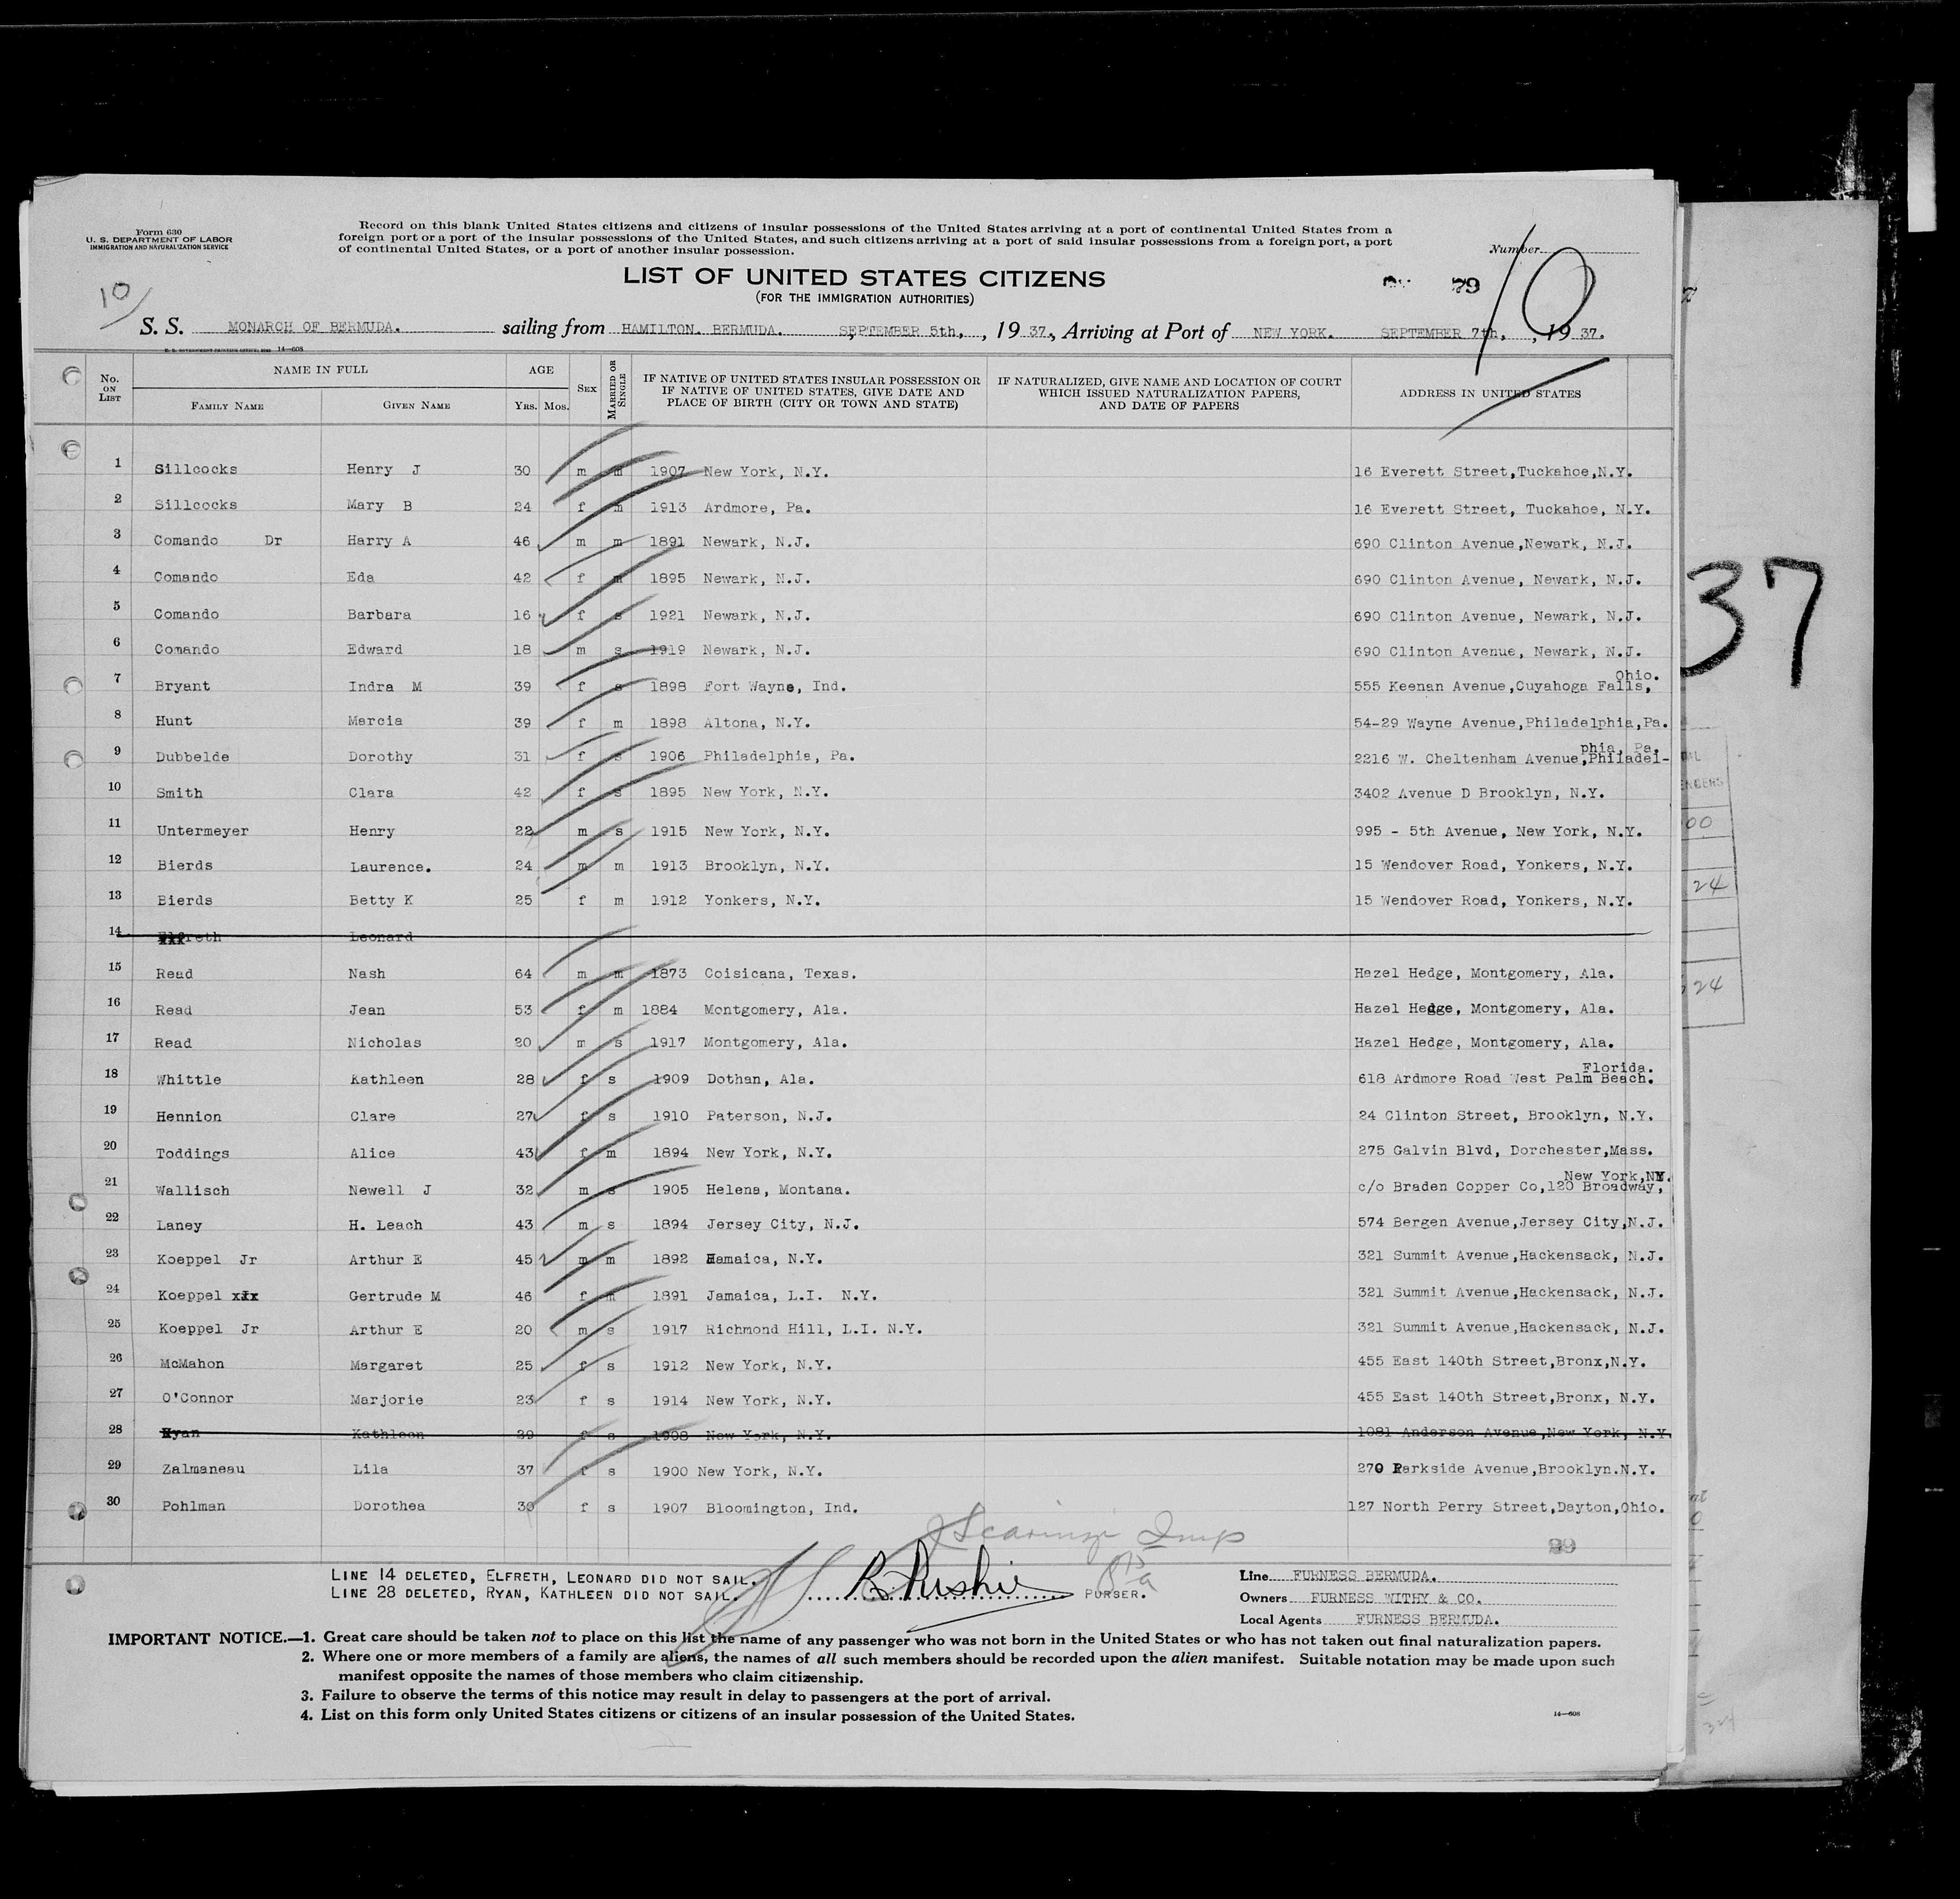 Form 630
U. S. DEPARTMENT OF LABOR
IMMIGRATION AND NATURALIZATION SERVICE
Record on this blank United States citizens and citizens of insular possessions of the United States arriving at a port of continental United States from a
foreign port or a port of the insular possessions of the United States, and such citizens arriving at a port of said insular possessions from a foreign port, a port
of continental United States, or a port of another insular possession.
Number
LIST OF UNITED STATES CITIZENS
(FOR THE IMMIGRATION AUTHORITIES)
79
10
10
S. S. MONARCH OF BERMUDA. sailing from HAMILTON. BERMUDA. SEPTEMBER 5th, , 19 37, Arriving at Port of NEW YORK. SEPTEMBER 7th, , 19 37.
14—608
No. ON LIST NAME IN FULL FAMILY NAME GIVEN NAME AGE YRS. MOS. SEX MARRIED OR SINGLE IF NATIVE OF UNITED STATES INSULAR POSSESSION OR IF NATIVE OF UNITED STATES, GIVE DATE AND PLACE OF BIRTH (CITY OR TOWN AND STATE) IF NATURALIZED, GIVE NAME AND LOCATION OF COURT WHICH ISSUED NATURALIZATION PAPERS, AND DATE OF PAPERS ADDRESS IN UNITED STATES
1 Sillcocks Henry J 30 m m 1907 New York, N.Y. 16 Everett Street,Tuckahoe,N.Y.
2 Sillcocks Mary B 24 f m 1913 Ardmore, Pa. 16 Everett Street, Tuckahoe, N.Y.
3 Comando Dr Harry A 46 m m 1891 Newark, N.J. 690 Clinton Avenue,Newark, N.J.
4 Comando Eda 42 f m 1895 Newark, N.J. 690 Clinton Avenue, Newark, N.J.
5 Comando Barbara 16 f s 1921 Newark, N.J. 690 Clinton Avenue, Newark, N.J.
6 Comando Edward 18 m s 1919 Newark, N.J. 690 Clinton Avenue, Newark, N.J.
7 Bryant Indra M 39 f s 1898 Fort Wayne, Ind. 555 Keenan Avenue,Cuyahoga Falls, Ohio.
8 Hunt Marcia 39 f m 1898 Altona, N.Y. 54-29 Wayne Avenue,Philadelphia,Pa.
9 Dubbelde Dorothy 31 f s 1906 Philadelphia, Pa. 2216 W. Cheltenham Avenue,Philadel- phia, Pa.
10 Smith Clara 42 f s 1895 New York, N.Y. 3402 Avenue D Brooklyn, N.Y.
11 Untermeyer Henry 22 m s 1915 New York, N.Y. 995 - 5th Avenue, New York, N.Y.
12 Bierds Laurence. 24 m m 1913 Brooklyn, N.Y. 15 Wendover Road, Yonkers, N.Y.
13 Bierds Betty K 25 f m 1912 Yonkers, N.Y. 15 Wendover Road, Yonkers, N.Y.
14 Elfreth Leonard
15 Read Nash 64 m m 1873 Coisicana, Texas. Hazel Hedge, Montgomery, Ala.
16 Read Jean 53 f m 1884 Montgomery, Ala. Hazel Hedge, Montgomery, Ala.
17 Read Nicholas 20 m s 1917 Montgomery, Ala. Hazel Hedge, Montgomery, Ala.
18 Whittle Kathleen 28 f s 1909 Dothan, Ala. 618 Ardmore Road West Palm Beach. Florida.
19 Hennion Clare 27 f s 1910 Paterson, N.J. 24 Clinton Street, Brooklyn, N.Y.
20 Toddings Alice 43 f m 1894 New York, N.Y. 275 Galvin Blvd, Dorchester,Mass.
21 Wallisch Newell J 32 m s 1905 Helena, Montana. c/o Braden Copper Co,120 Broadway, New York,NY.
22 Laney H. Leach 43 m s 1894 Jersey City, N.J. 574 Bergen Avenue,Jersey City,N.J.
23 Koeppel Jr Arthur E 45 m m 1892 Jamaica, N.Y. 321 Summit Avenue,Hackensack, N.J.
24 Koeppel xxx Gertrude M 46 f m 1891 Jamaica, L.I. N.Y. 321 Summit Avenue,Hackensack, N.J.
25 Koeppel Jr Arthur E 20 m s 1917 Richmond Hill, L.I. N.Y. 321 Summit Avenue,Hackensack, N.J.
26 McMahon Margaret 25 f s 1912 New York, N.Y. 455 East 140th Street,Bronx,N.Y.
27 O'Connor Marjorie 23 f s 1914 New York, N.Y. 455 East 140th Street,Bronx, N.Y.
28 Ryan Kathleen 29 f s 1908 New York, N.Y. 1081 Anderson Avenue,New York, N.Y.
29 Zalmaneau Lila 37 f s 1900 New York, N.Y. 270 Parkside Avenue,Brooklyn.N.Y.
30 Pohlman Dorothea 30 f s 1907 Bloomington, Ind. 127 North Perry Street,Dayton,Ohio.
LINE 14 DELETED, ELFRETH, LEONARD DID NOT SAIL.
LINE 28 DELETED, RYAN, KATHLEEN DID NOT SAIL.
PURSER.
Line FURNESS BERMUDA.
Owners FURNESS WITHY & CO.
Local Agents FURNESS BERMUDA.
IMPORTANT NOTICE.—1. Great care should be taken not to place on this list the name of any passenger who was not born in the United States or who has not taken out final naturalization papers.
2. Where one or more members of a family are aliens, the names of all such members should be recorded upon the alien manifest. Suitable notation may be made upon such
manifest opposite the names of those members who claim citizenship.
3. Failure to observe the terms of this notice may result in delay to passengers at the port of arrival.
4. List on this form only United States citizens or citizens of an insular possession of the United States.
14—608
37
00
24
24